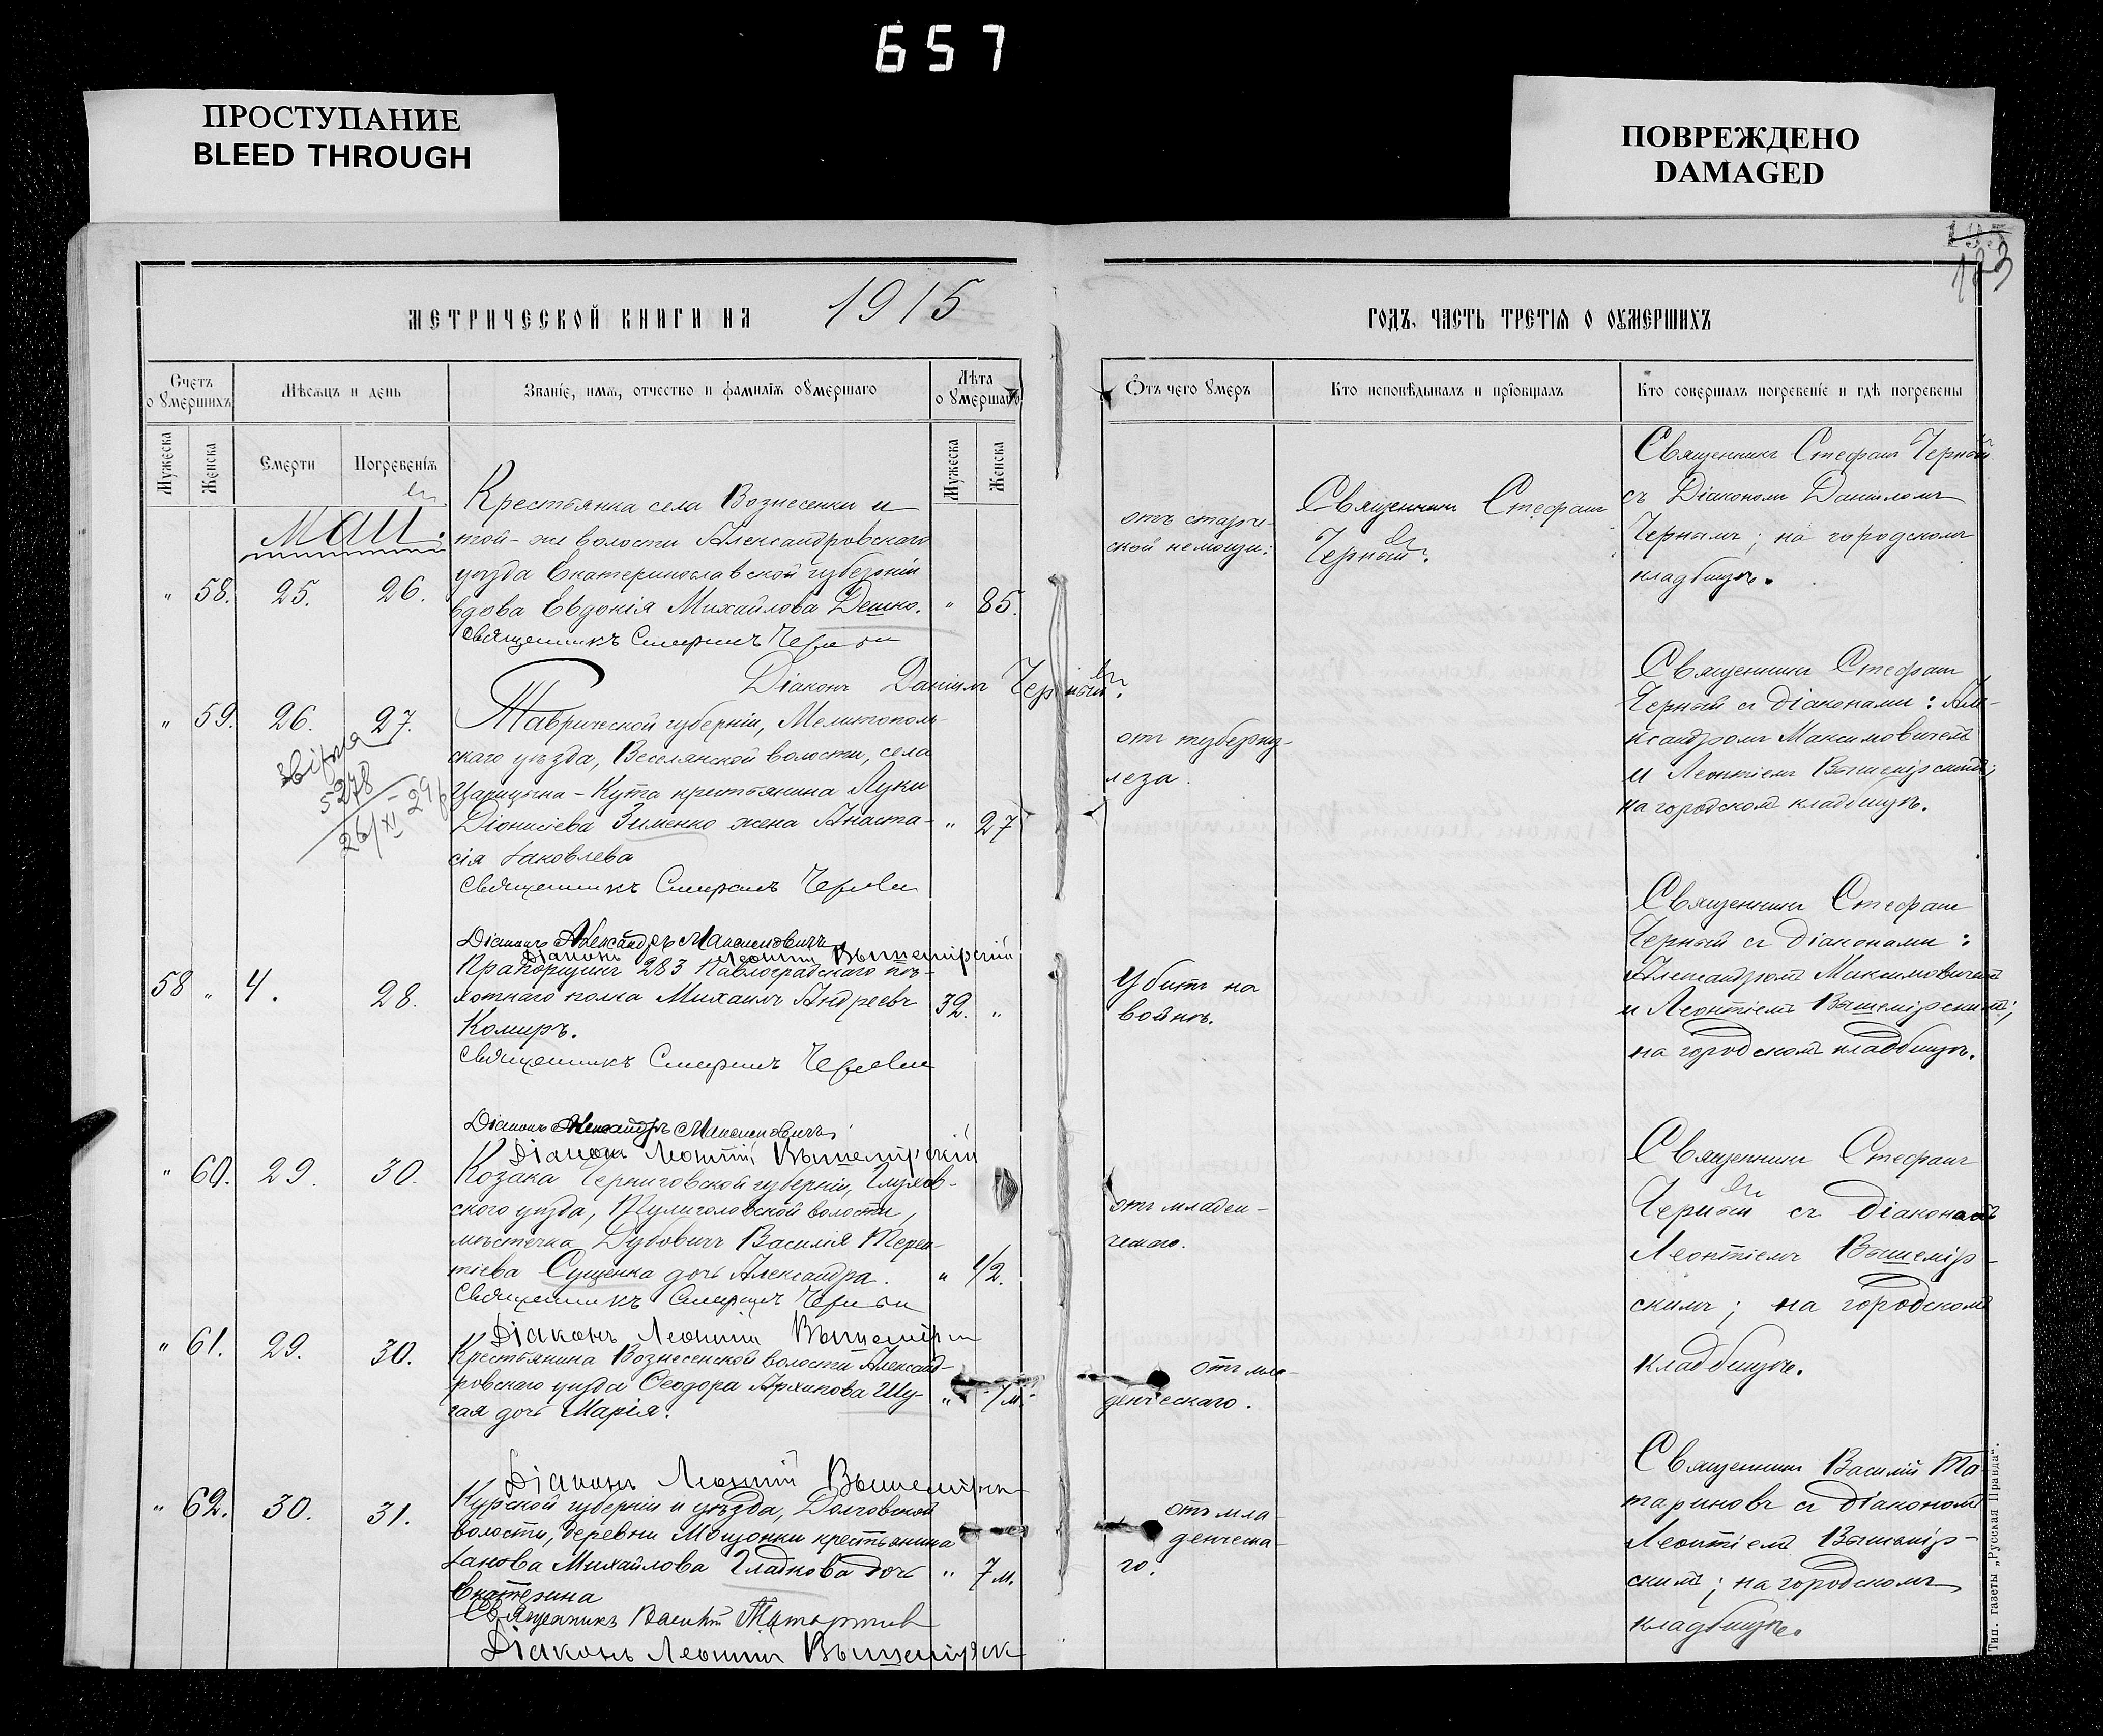 657
ПРОСТУПАНИЕ
BLEED THROUGH
ПОВРЕЖДЕНО
DAMAGED
183
МЕТРИЧЕСКОЙ КНИГИ НА 1915
ГОДЪ, ЧАСТЬ ТРЕТІЯ О ОУМЕРШИХЪ
Счетъ о умершихъ
Мѣсяцъ и день
Званіе, имя, отчество и фамилія оумершаго
Лѣта о умершаго
Отъ чего умеръ
Кто исповѣдывалъ и пріобщалъ
Кто совершалъ погребеніе и гдѣ погребены
Мужеска
Женска
Смерти
Погребенія
Мужеска
Женска
Май.
" 58. 25. 26.
Крестьянка села Вознесенки и
той-же волости Александровскаго
уѣзда Екатеринославской губерніи
вдова Евдокія Михайлова Дешко. " 85.
Священникъ Стефанъ Черный
Діаконъ Даніилъ Черный.
отъ старче-
ской немощи.
Священникъ Стефанъ
Черный.
Священникъ Стефанъ Черный
съ Діакономъ Даніиломъ
Чернымъ; на городскомъ
кладбищѣ.
" 59. 26. 27.
5278
26/XI 29
Таврической губерніи, Мелитополь-
скаго уѣзда, Веселянской волости, села
Царицына-Кута крестьянина Луки
Діонисіева Зименко жена Анаста- " 27
сія Іаковлева
Священникъ Стефанъ Черный
Діаконъ Александръ Максимовичъ
Діаконъ Леонтій Вышемірскій
отъ туберку-
леза.
Священникъ Стефанъ
Черный съ діаконами: Але-
ксандромъ Максимовичемъ
и Леонтіемъ Вышемірскимъ;
на городскомъ кладбищѣ.
58 " 4. 28.
Прапорщикъ 283 Павлоградскаго пѣ-
хотнаго полка Михаилъ Андреевъ 32. "
Комиръ.
Священникъ Стефанъ Черный
Діаконъ Александръ Максимовичъ
Діаконъ Леонтій Вышемірскій
Убитъ на
войнѣ.
Священникъ Стефанъ
Черный съ діаконами:
Александромъ Максимовичемъ
и Леонтіемъ Вышемірскимъ;
на городскомъ кладбищѣ.
" 60. 29. 30.
Козака Черниговской губерніи, Глухов-
ского уѣзда, Тулиголовской волости,
мѣстечка Дубовичъ Василія Терен-
тіева Сущенка дочь Александра. " 1/2.
Священникъ Стефанъ Черный
Діаконъ Леонтій Вышемірскій
отъ младен-
ческаго.
Священникъ Стефанъ
Черный съ діакономъ
Леонтіемъ Вышемір-
скимъ; на городскомъ
кладбищѣ.
" 61. 29. 30.
Крестьянина Вознесенской волости Александ-
ровскаго уѣзда Ѳеодора Архипова Шу-
гая дочь Марія.
Діаконъ Леонтій Вышемірскій
отъ мла-
денческаго.
" 62. 30. 31.
Курской губерніи и уѣзда, Долговской
волости, деревни Моцонки крестьянина
Іакова Михайлова Гладкова дочь " 7 м.
Екатерина
Священникъ Василій Татариновъ
Діаконъ Леонтій Вышемірск
отъ мла-
денческа-
го.
Священникъ Василій Та-
тариновъ съ діакономъ
Леонтіемъ Вышемір-
скимъ; на городскомъ
кладбищѣ.
Тип. газеты „Русская Правда".